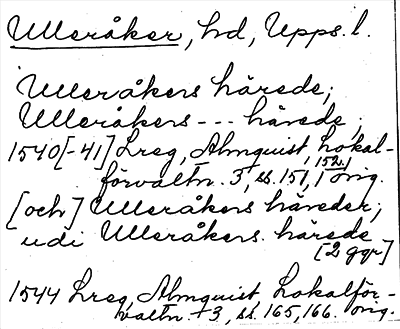 Ulleråker, hd, Upps. l.
Ulleråkers härede;
Ulleråkers --- härede,
1540[-41] Lreg, Almquist, Lokal-
förvaltn. 3, ss. 151, 152, 1 orig.
[och] Ulleråkers häreder;
udi Ulleråkers härede
[2 ggr]
1544 Lreg, Almquist Lokalför-
valtn. 3, ss. 165, 166. orig.